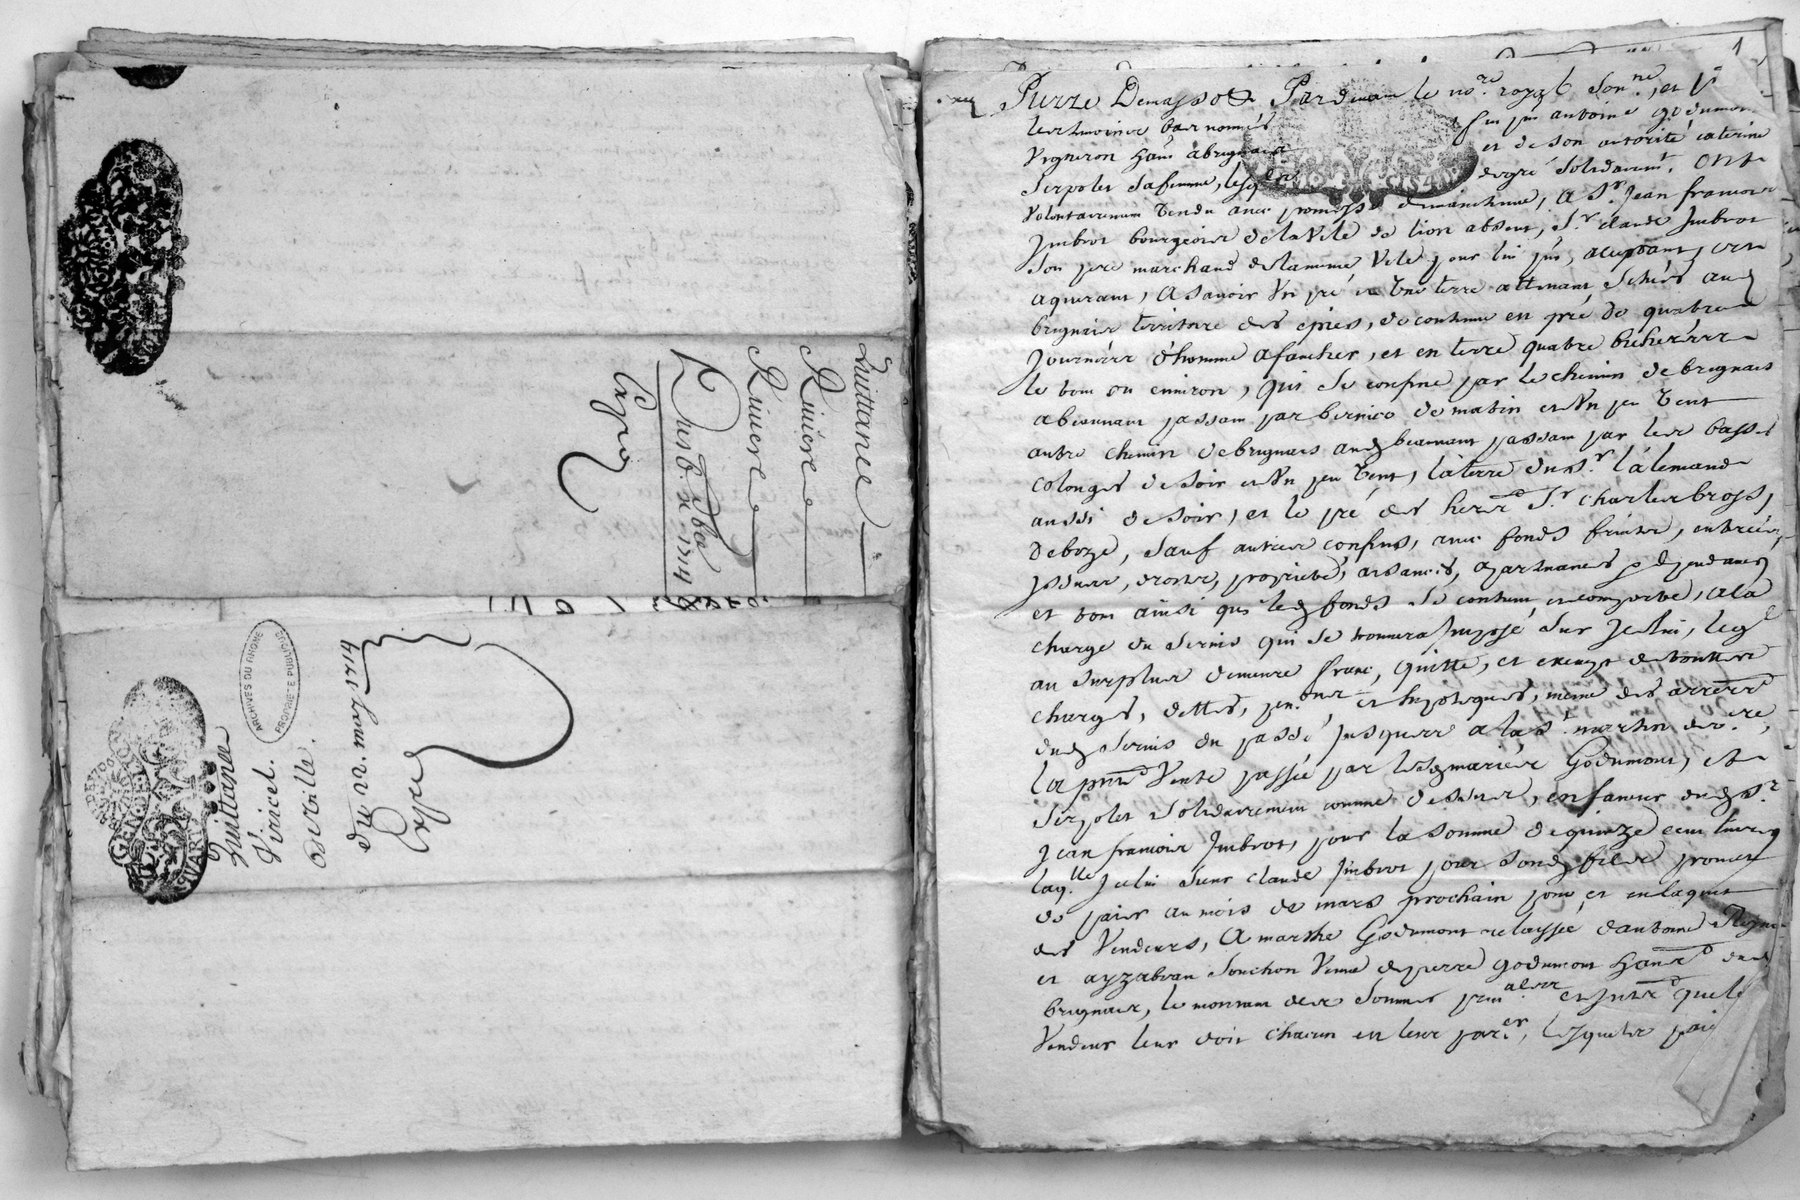 Quittance
Riviere
Riviere
1714
Expedié
ARCHIVES DU RHONE
PROPRIETE PUBLIQUE
Quitance
Viricel.
Derville.
du 22. may 1714
Expedié
1
Pierre Par devant le no.re royal son.ne, et
les temoins bas nommés fut pnt antoine godumont
Vigneron hant a brignais et de son autorité caterine
Serpolet sa femme, lesq. de gré solidairemt. Ont
Volontairement Vendu avec promesse de maintenue, a Sr. Jean francois
Jmbrot bourgeois de la Vile de lion absent, Sr. claude Jmbrot
son pere marchand de la meme Vile pour lui pnt, aceptant, et
aquerant, a savoir Vn pré et Vne terre attenant situés aud
brignais territoire des epies, de contenue en pré de quatre
Journées d'homme a faucher, et en terre quatre bicherees
le tout ou environ, qui se confine par le chemin de brignais
a beaunant passant par bernico de matin et Vn peu Vent
autre chemin de brignais aud beaunant passant par les basses
colonges de soir et Vn peu Vent, la terre dud sr. lalemand
aussi de soir, et le pré des heritrs Sr charles bross,
Deboze, sauf autres confins, avec fonds fruits, entrées,
Jssues, droits, proprieté, aisances, apartenances & dependances
et tout ainsi que led fonds se contient et comporte, a la
charge du servis qui se trouvera Jmposé sur Jcelui, leql
au surplus demeure franc, quitte, et exempt de toutes
charges, dettes, pen.ons et hypoteques, meme des arrerr
dud servis du passé Jusques a la st. martin der.re,
la pnte Vente passée par lesd mariés Godumont, et
Serpolet solidairement comme dessus, en faveur dud sr.
Jean francois Jmbrot, pour la somme de quinze cent livres
laq.lle Jcelui sieur claude Jmbrot pour sond fils promet
de paier au mois de mars prochain pour et en laquit
des Vendeurs, a marthe Godumont relaissée d'antoine
et ayzabeau Souchon Veuve de pierre godumont dud
brignais, le montant des sommes prin.ales et Jnter que les
Vendeurs leur doit chacun en leur par.er, lesqueles